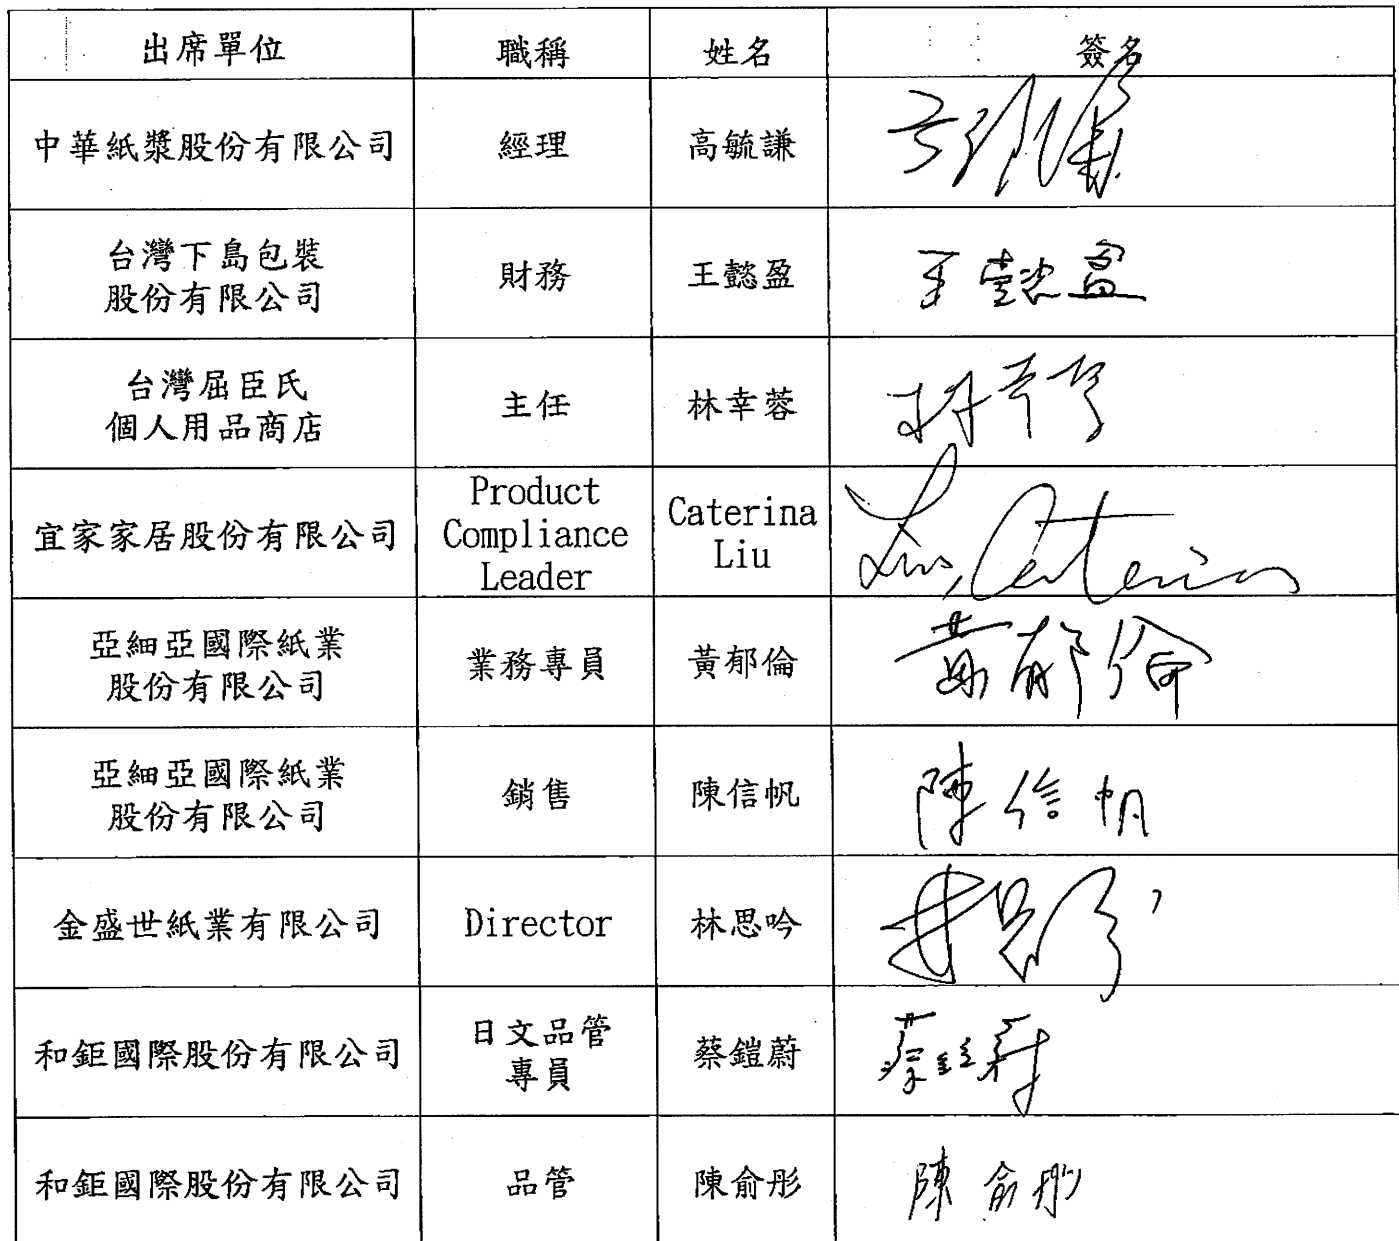 出席單位 職稱 姓名 簽名
中華紙漿股份有限公司 經理 高毓謙
台灣下島包裝
股份有限公司 財務 王懿盈 王懿盈
台灣屈臣氏
個人用品商店 主任 林幸蓉
宜家家居股份有限公司 Product
Compliance
Leader Caterina
Liu Liu, Caterina
亞細亞國際紙業
股份有限公司 業務專員 黃郁倫 黃郁倫
亞細亞國際紙業
股份有限公司 銷售 陳信帆 陳信帆
金盛世紙業有限公司 Director 林思吟
和鉅國際股份有限公司 日文品管
專員 蔡鎧蔚
和鉅國際股份有限公司 品管 陳俞彤 陳俞彤